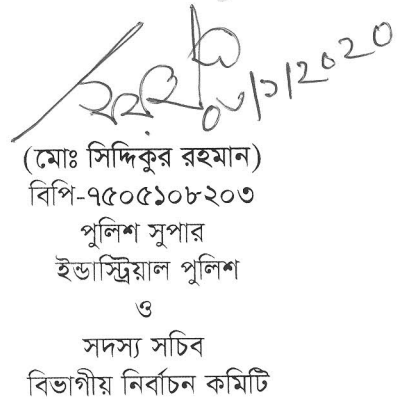 ০৮/১/২০২০
(মোঃ সিদ্দিকুর রহমান)
বিপি-৭৫০৫১০৮২০৩
পুলিশ সুপার
ইন্ডাস্ট্রিয়াল পুলিশ
ও
সদস্য সচিব
বিভাগীয় নির্বাচন কমিটি